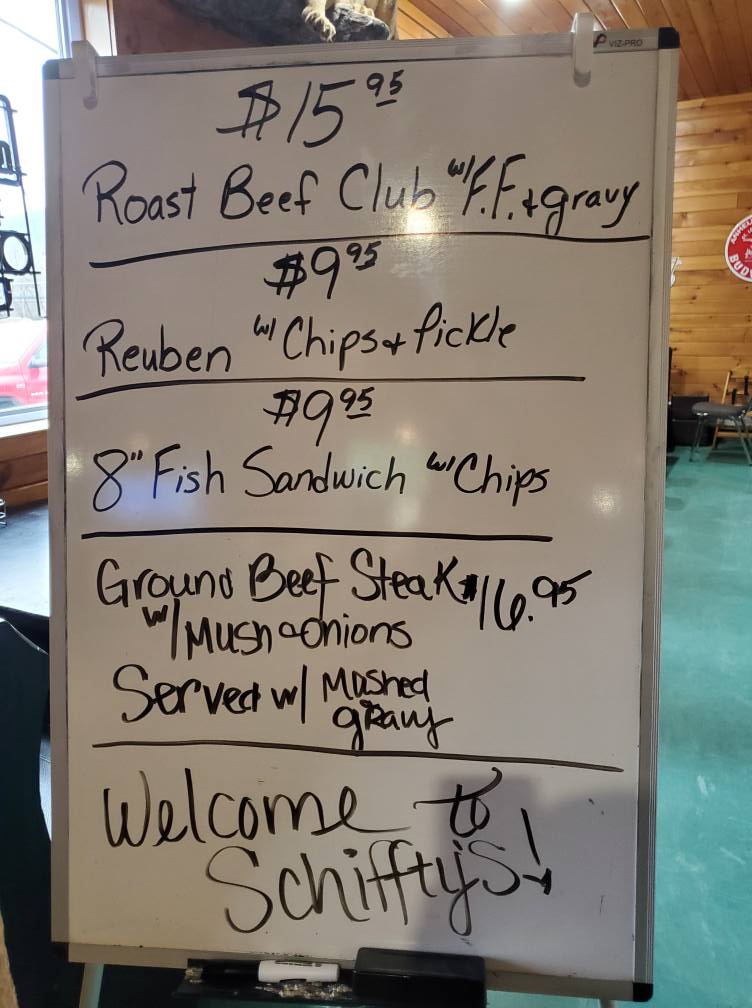 VIZ-PRO
$15.95
Roast Beef Club w/ F.F. + gravy
$9.95
Reuben w/ Chips + Pickle
$9.95
8" Fish Sandwich w/ Chips
Ground Beef Steak $16.95
w/ Mush & Onions
Served w/ Mashed
gravy
Welcome to
Schiffty's!